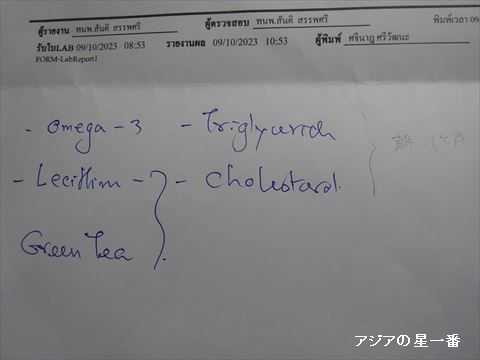 ผู้รายงาน ทนพ.สันติ สรรพศรี ผู้ตรวจสอบ ทนพ.สันติ สรรพศรี พิมพ์เวลา 09
รับใบLAB 09/10/2023 08:53 รายงานผล 09/10/2023 10:53 ผู้พิมพ์ ศจินาฎ ศรีวัฒนะ
FORM-LabReport1
- Omega - 3 - Triglycerich
- Lecithim - - Cholestarol
Green Tea
アジアの星一番